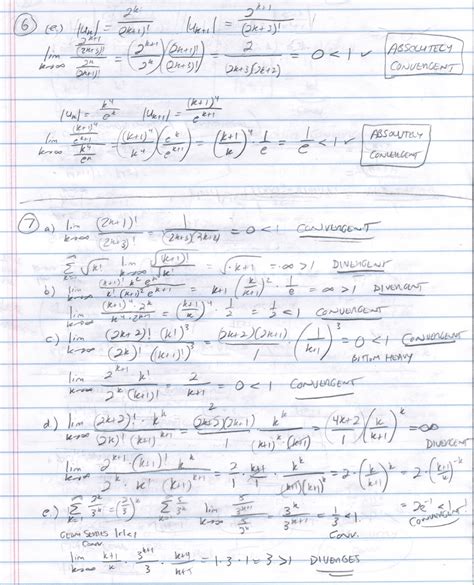 ⑥ (e.) |u_k| = 2^k/(2k+1)!   |u_{k+1}| = 2^{k+1}/(2k+3)!
lim k→∞ (2^{k+1}/(2k+3)!)/(2^k/(2k+1)!) = (2^{k+1}/2^k)((2k+1)!/(2k+3)!) = 2/((2k+3)(2k+2)) = 0 < 1 ✓ ABSOLUTELY CONVERGENT
|u_k| = k^4/e^k   |u_{k+1}| = (k+1)^4/e^{k+1}
lim k→∞ ((k+1)^4/e^{k+1})/(k^4/e^k) = ((k+1)^4/k^4)(e^k/e^{k+1}) = ((k+1)/k)^4 1/e = 1/e < 1 ✓ ABSOLUTELY CONVERGENT
⑦ a) lim k→∞ (2k+1)!/(2k+3)! = 1/((2k+3)(2k+2)) = 0 < 1 CONVERGENT
∑ √k! lim k→∞ √(k+1)!/√k! = √(k+1) = ∞ > 1 DIVERGENT
b) lim k→∞ (k+1)! k² e^k/(k! (k+1)² e^{k+1}) = k+1 (k/(k+1))² · 1/e = ∞ > 1 DIVERGENT
lim k→∞ (k+1)^4 · 2^k/(k^4 · 2^{k+1}) = ((k+1)/k)^4 · 1/2 = 1/2 < 1 CONVERGENT
c) lim k→∞ (2k+2)! (k!)³/((2k)! ((k+1)!)³) = (2k+2)(2k+1)/1 · (1/(k+1))³ = 0 < 1 CONVERGENT
BOTTOM HEAVY
lim k→∞ 2^{k+1} k!/(2^k (k+1)!) = 2/(k+1) = 0 < 1 CONVERGENT
d) lim k→∞ (2k+2)! · k^k/((2k)! (k+1)^{k+1}) = 2 (2k+2)(2k+1)/1 · k^k/((k+1)^k (k+1)) = ((4k+2)/1)(k/(k+1))^k = ∞
DIVERGENT
lim k→∞ 2^{k+1} · (k+1)! k^k/(2^k · k! (k+1)^{k+1}) = 2/1 · (k+1)/1 · k^k/((k+1)(k+1)^k) = 2 · (k/(k+1))^k = 2 · ((k+1)/k)^{-k}
= 2e^{-1} < 1 CONVERGENT
e) ∑ k=1 ∞ 2^k/3^k = (2/3)^k ∑ k=1 ∞ 5/3^k lim k→∞ (5/3^{k+1})/(5/3^k) = 3^k/3^{k+1} = 1/3 < 1 CONV.
GEOM SERIES |r| < 1 CONV.
lim k→∞ (k+1)/k · 3^{k+1}/3 · (k+4)/(k+5) = 1 · 3 · 1 = 3 > 1 DIVERGES